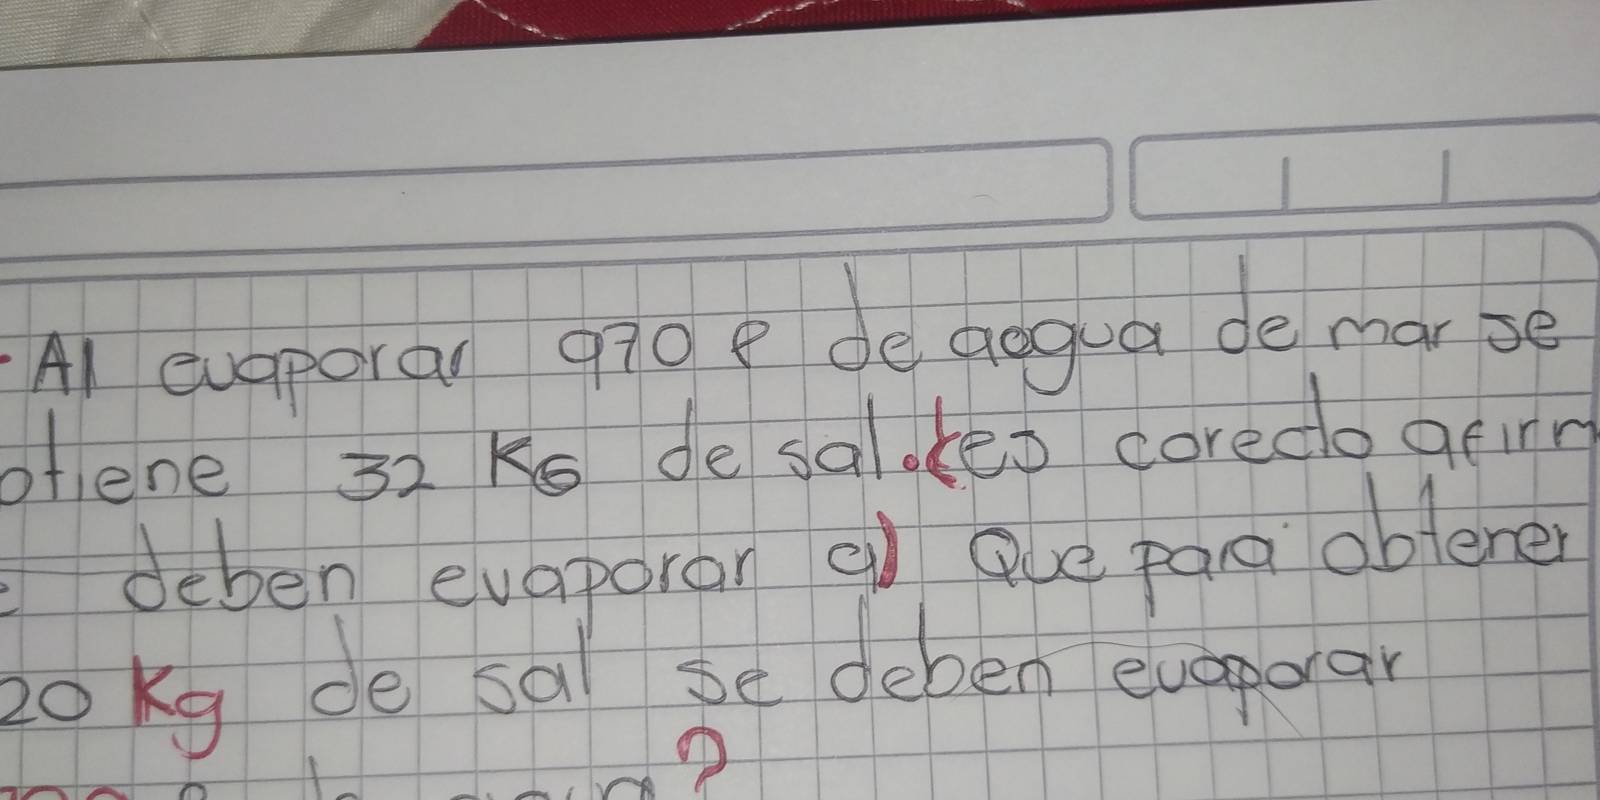 Al evaporar 970 l de aogua de mar se
otiene 32 KG de sal. ¿es corecto afirm
e deben evaporar q) Que para obtener
20 Kg de sal se deben evaporar
?